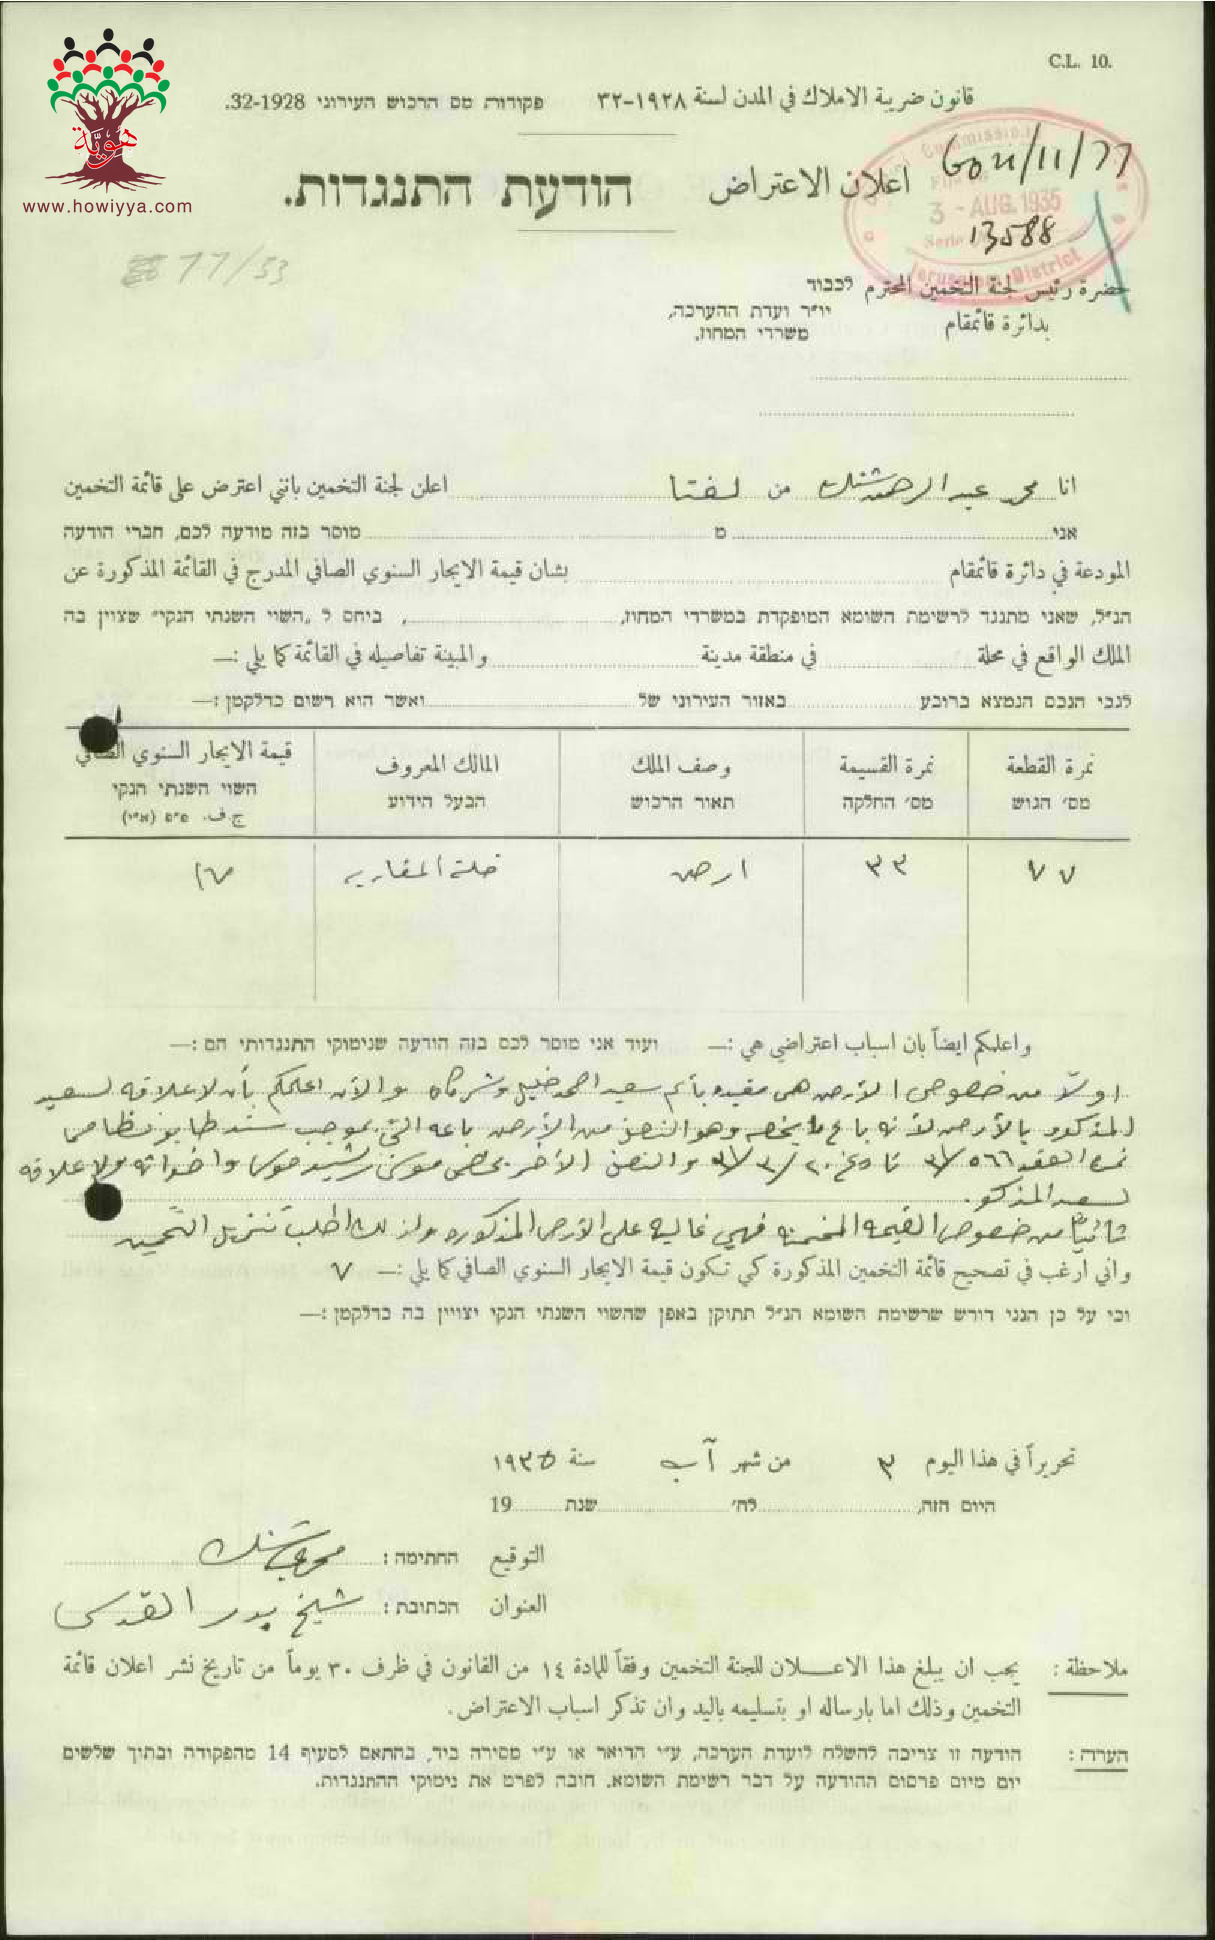 هويّة
www.howiyya.com
C.L. 10.
قانون ضريبة الاملاك في المدن لسنة ١٩٢٨-٣٢
פקודות מס הרכוש העירוני 1928-32.
اعلان الاعتراض
הודעת התנגדות.
77/33
3 - AUG. 1935
13588
Jerusalem District
حضرة رئيس لجنة التخمين المحترم
לכבוד
بدائرة قائمقام
יו״ר ועדת ההערכה,
משרדי המחוז.
انا محمد عبد الرحمن من لفتا اعلن لجنة التخمين بانني اعترض على قائمة التخمين
אני מ מוסר בזה מודעה לכם, חברי הודעה
المودعة في دائرة قائمقام بشان قيمة الايجار السنوي الصافي المدرج في القائمة المذكورة عن
הנ״ל, שאני מתנגד לרשימת השומא המופקדת במשרדי המחוז, ביחס ל „השוי השנתי הנקי״ שצוין בה
الملك الواقع في محلة في منطقة مدينة والمبينة تفاصيله في القائمة كما يلي :—
לגבי הנכס הנמצא ברובע באזור העירוני של ואשר הוא רשום כדלקמן :—
نمرة القطعة
מס׳ הגוש
نمرة القسيمة
מס׳ החלקה
وصف الملك
תאור הרכוש
المالك المعروف
הבעל הידוע
قيمة الايجار السنوي الصافي
השוי השנתי הנקי
ج.ف. פ״פ (א״י)
٧٧ ٣٣ ارض ١٧
واعلمكم ايضاً بان اسباب اعتراضي هي :—
ועוד אני מוסר לכם בזה הודעה שנימוקי התנגדותי הם :—
اولاً من خصوص الأرض هي مقيده بأسم سعيد احمد خليل وشركاه والآن اعلمكم بأن لا علاقه لسعيد
المذكور بالأرض لأنه باع ما يخصه وهو النصف من الأرض باعه التي بموجب سند طابو نظامي
نمرة العقد ٥٦٦/٣١ تاريخ ٢٠/٣/٣١ والنصف الآخر يخص موسى رشيد موسى واخوانه ولا علاقه
لسعيد المذكور.
ثانياً من خصوص القيمه المخمنه فهي غاليه على الأرض المذكوره ولذلك اطلب تنزيل التخمين
واني ارغب في تصحيح قائمة التخمين المذكورة كي تكون قيمة الايجار السنوي الصافي كما يلي :— ٧
וכי על כן הנני דורש שרשימת השומא הנ״ל תתוקן באפן שהשוי השנתי הנקי יצויין בה כדלקמן :—
تحريراً في هذا اليوم ٣ من شهر آب سنة ١٩٣٥
היום הזה, לח׳ שנת 19
التوقيع החתימה :
العنوان הכתובת : شيخ بدر القدس
ملاحظة : يجب ان يبلغ هذا الاعلان للجنة التخمين وفقاً للمادة ١٤ من القانون في ظرف ٣٠ يوماً من تاريخ نشر اعلان قائمة
التخمين وذلك اما بارساله او بتسليمه باليد وان تذكر اسباب الاعتراض.
הערה : הודעה זו צריכה להשלח לועדת הערכה, ע״י הדואר או ע״י מסירה ביד, בהתאם לסעיף 14 מהפקודה ובתוך שלשים
יום מיום פרסום ההודעה על דבר רשימת השומא. חובה לפרט את נימוקי ההתנגדות.